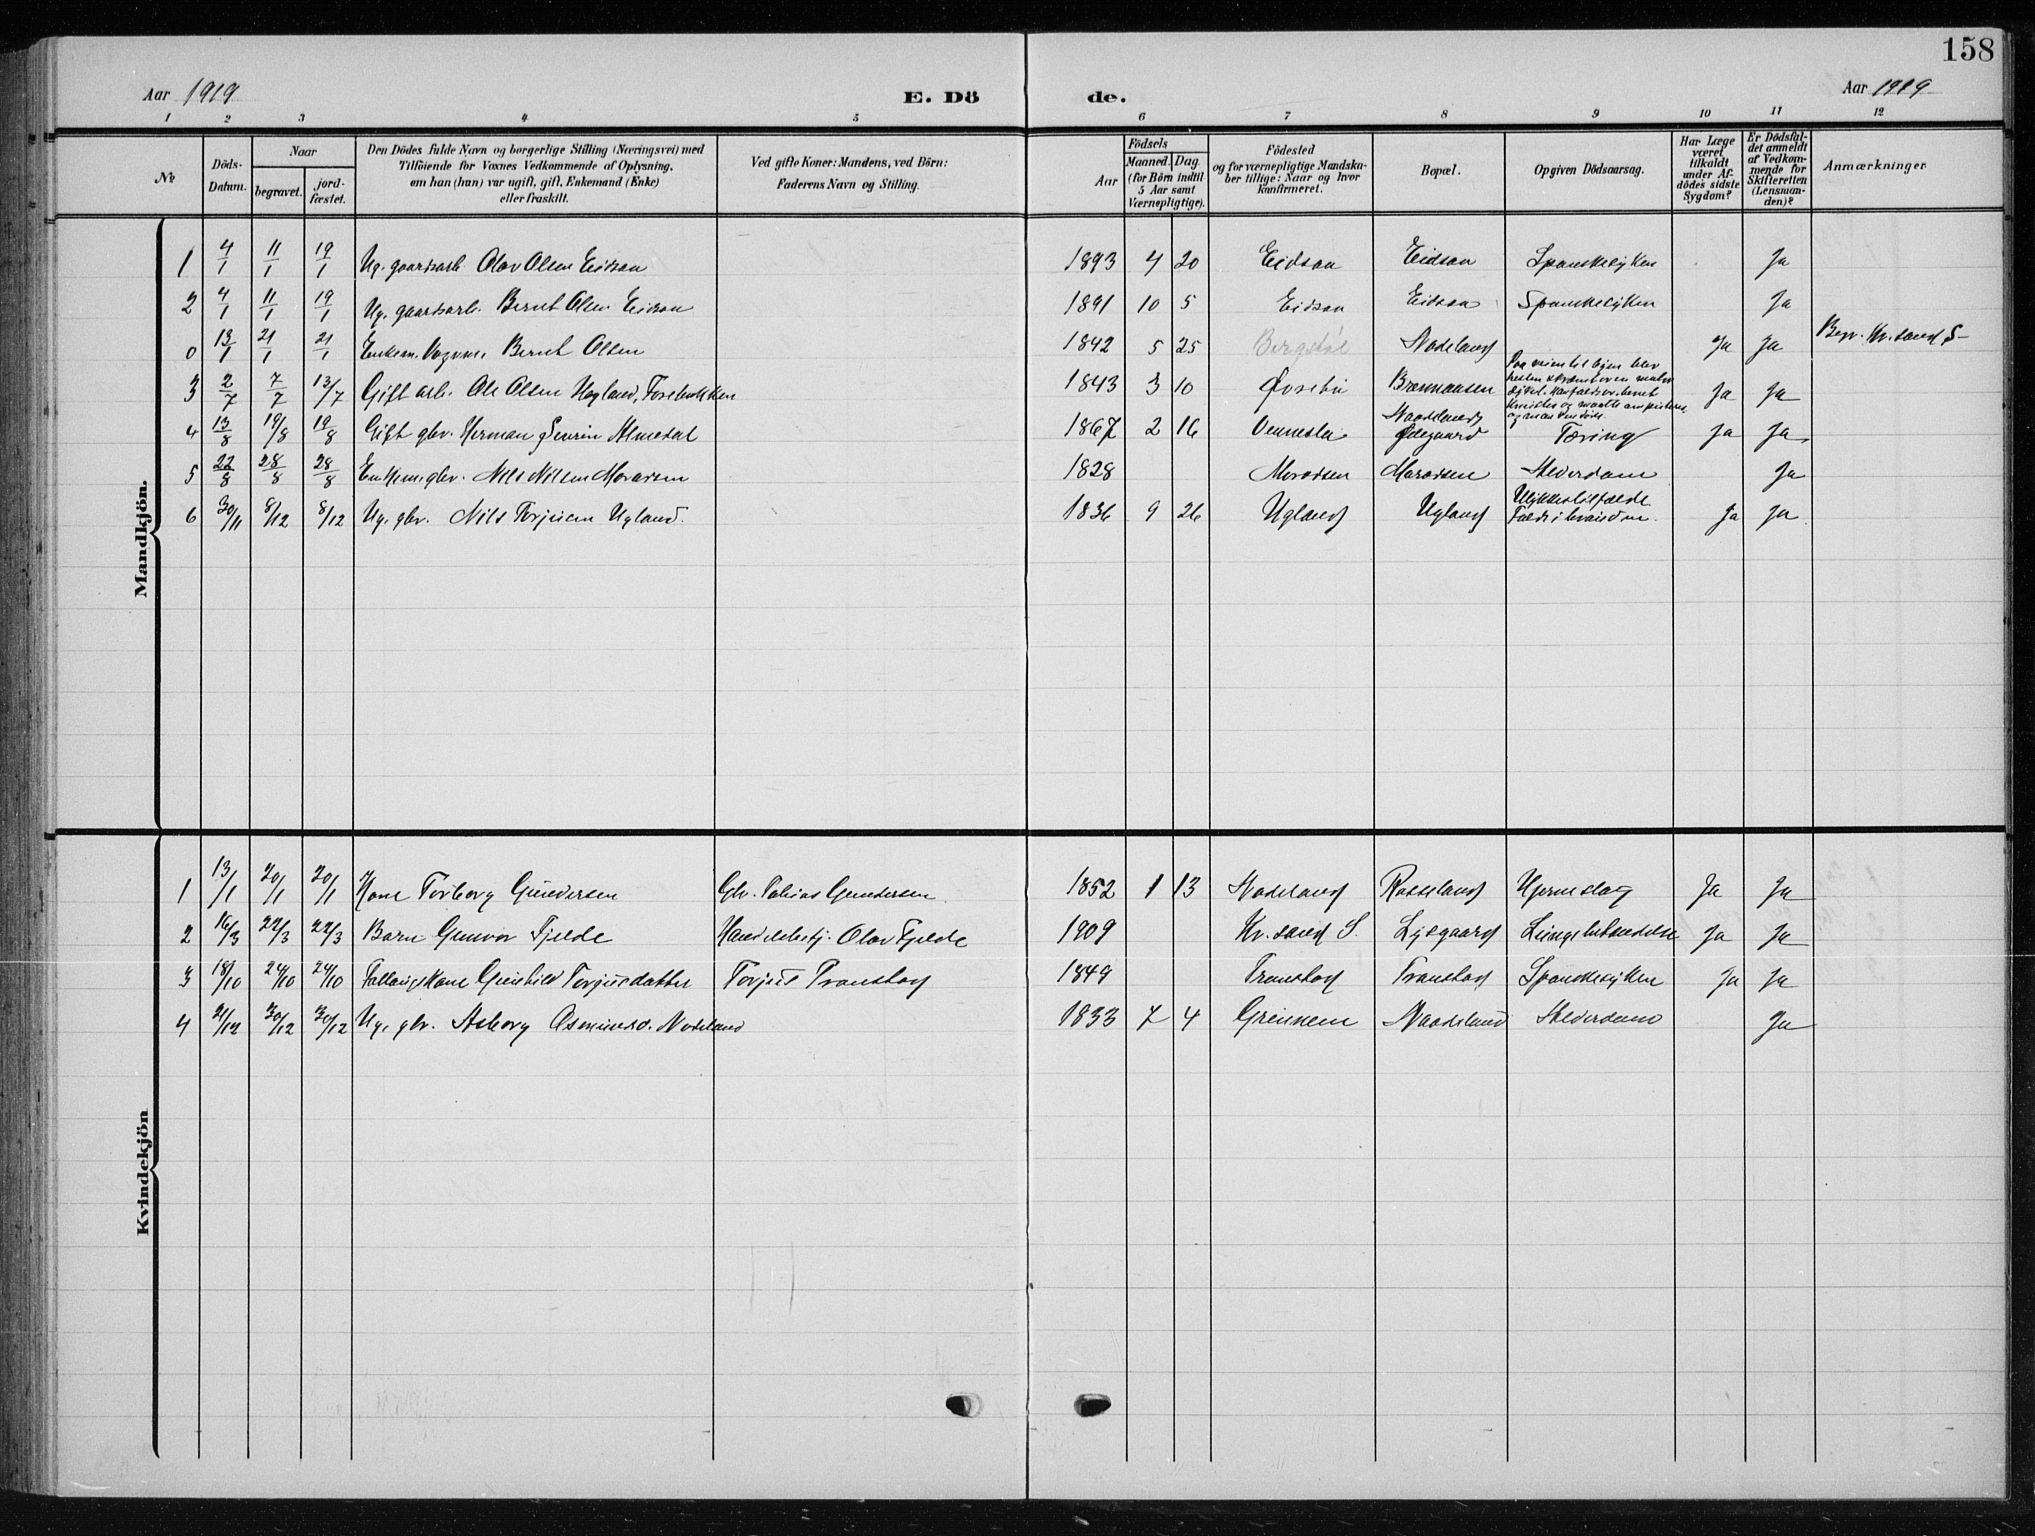 158
Aar 1919 E. Dö de. Aar 1919
1 2 3 4 5 6 7 8 9 10 11 12
№
Döds-Datum.
Naar
begravet. jord-fæstet.
Den Dödes fulde Navn og borgerlige Stilling (Næringsvei) med
Tilföiende for Voxnes Vedkommende af Oplysning,
om han (hun) var ugift, gift, Enkemand (Enke)
eller fraskilt.
Ved gifte Koner: Mandens, ved Börn:
Faderens Navn og Stilling.
Födsels
Aar
Maaned. Dag.
(for Börn indtil
5 Aar samt
Værnepligtige).
Födested
og for værnepligtige Mandska-
ber tillige: Naar og hvor
konfirmeret.
Bopæl.
Opgiven Dödsaarsag.
Har Læge
været
tilkaldt
under Af-
dödes sidste
Sygdom?
Er Dödsfal-
det anmeldt
af Vedkom-
mende for
Skifteretten
(Lensman-
den)?
Anmærkninger
Mandkjön.
1 4/1 11/1 19/1 Ug. gaardsarb. Olav Olsen Eidsaa 1893 4 20 Eidsaa Eidsaa Spanskesyken Ja
2 4/1 11/1 19/1 Ug. gaardsarb. Bernt Olsen Eidsaa 1891 10 5 Eidsaa Eidsaa Spanskesyken Ja
0 13/1 21/1 21/1 Enkem. Vognm. Bernt Olsen 1842 5 25 Bergstøl Nodeland Ja Ja Begr. Kr.sand S
3 2/7 7/7 13/7 Gift arb. Ole Olsen Hagland, 1843 3 10 Øvrebø Ja Ja
4 13/8 19/8 19/8 Gift gbr. Herman Severin Almedal 1867 2 16 Vennesla Naadelands Ødegaard Tæring Ja Ja
5 22/8 28/8 28/8 Enkem. gbr. Nils Nilsen 1828 Alderdom Ja
6 30/11 8/12 8/12 Ug. gbr. Nils Torjusen Ugland. 1836 9 26 Ugland Ugland Ulykkestilfælde Ja Ja
Kvindekjön
1 13/1 20/1 20/1 Kone Torborg Gundersen Gbr. Tobias Gundersen. 1852 1 13 Nodeland Rosseland Hjerneslag Ja Ja
2 16/3 22/3 22/3 Barn Gunvor Fjelde Handelsbetj. Olav Fjelde 1909 Kr.sand S. Lysgaard Lungebetændelse Ja Ja
3 18/10 24/10 24/10 Gunhild Torjusdatter Torjus Tronstad 1849 Tronstad Tronstad Spanskesyken Ja Ja
4 21/12 30/12 30/12 Ug. gbr. Asborg Asmundsd. Nodeland 1833 7 4 Greinem Naadeland Alderdom Ja